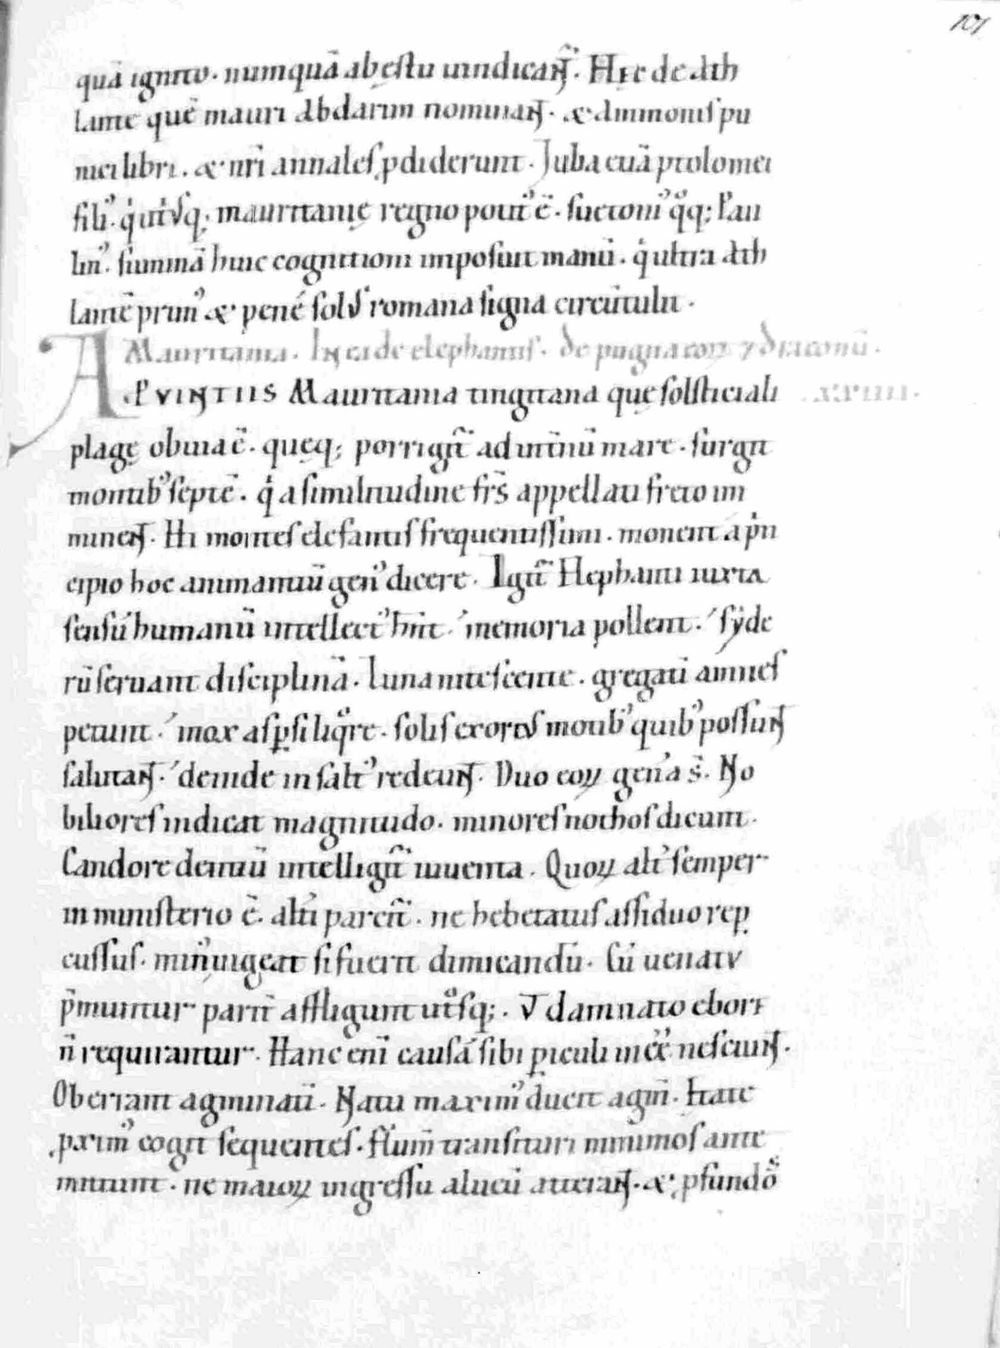 101
quā ignito. numquā ab ęstu uindicant̄. Hęc de Ath
lante quē mauri Abdarim nominant. & Ammonis pu
nici libri. & nr̄i annales p̱diderunt. Juba &iā ptolomei
fili'. qi utsq; mauritanię regno potit' ē. suetoni' qoq; Pau
lin'. summā huic cognitioni imposuit manū. qi ultra Ath
lantē prim' & pené sol's romana signa circūtulit.
Mauritania. In ea de elephantis. de pugna eoꝝ 7 draconū.
A P VINTIIS Mauritania tingitana que solsticiali xxiiii.
plagę obuia ē. quęq; porrigit̄ ad intinū mare. surgit
montib' septē. qi a similitudine fr̄s appellati freto im
minent. Hi montes elefantis frequentissimi. monent a prin
cipio hoc animantiū gen' dicere. Igit̄ Elephanti iuxta
sensū humanū intellect' hn̄t. memoria pollent. syde
rū seruant disciplinā. Luna nitescente. gregati amnes
petunt. mox aspsi liqore. solis exortus motib' quib' possunt
salutant. deinde in salt' redeunt. Duo eoꝝ gen'a s̄. No
biliores indicat magnitudo. minores nothos dicunt.
Candore dentiū intelligit̄ iuuenta. Quoꝝ alt' semper
in ministerio ē. alt'i parcit̄. ne hebetatus assiduo rep
cussus. min' uigeat si fuerit dimicandū. Cū uenatu
p̄muntur parit̄ affligunt utosq;. Vt damnato ebore
n̄ requirantur. Hanc enī causā sibi p̱iculi inēē nesciunt.
Oberrant agminatī. Natu maxim' ducit agm̄. &ate
p̱xim' cogit sequentes. Flum̄ transituri minimos ante
mittunt. ne maioꝝ ingressu alueū atterant. & p̱fundos